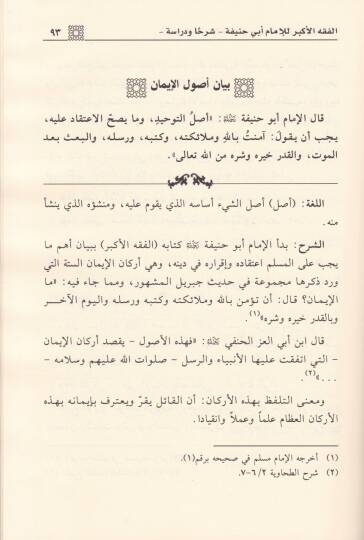 الفقه الأكبر للإمام أبي حنيفة - شرحًا ودراسة -
٩٣
بيان أصول الإيمان
قال الإمام أبو حنيفة ﵀: «أصلُ التوحيدِ، وما يصحّ الاعتقاد عليه،
يجب أن يقولَ: آمنتُ باللهِ وملائكته، وكتبه، ورسله، والبعث بعد
الموت، والقدر خيره وشره من الله تعالى».
اللغة: (أصل) أصل الشيء أساسه الذي يقوم عليه، ومنشؤه الذي ينشأ
منه.
الشرح: بدأ الإمام أبو حنيفة ﵀ كتابه (الفقه الأكبر) ببيان أهم ما
يجب على المسلم اعتقاده وإقراره في دينه، وهي أركان الإيمان الستة التي
ورد ذكرها مجموعة في حديث جبريل المشهور، ومما جاء فيه: «ما
الإيمان؟ قال: أن تؤمن بالله وملائكته وكتبه ورسله واليوم الآخـــر
وبالقدر خيره وشره»(١).
قال ابن أبي العز الحنفي ﵀: «فهذه الأصول - يقصد أركان الإيمان
- التي اتفقت عليها الأنبياء والرسل - صلوات الله عليهم وسلامه -
. . .»(٢).
ومعنى التلفظ بهذه الأركان: أن القائل يقرّ ويعترف بإيمانه بهذه
الأركان العظام علماً وعملاً وانقيادا.
(١) أخرجه الإمام مسلم في صحيحه برقم(١).
(٢) شرح الطحاوية ٢/ ٦-٧.